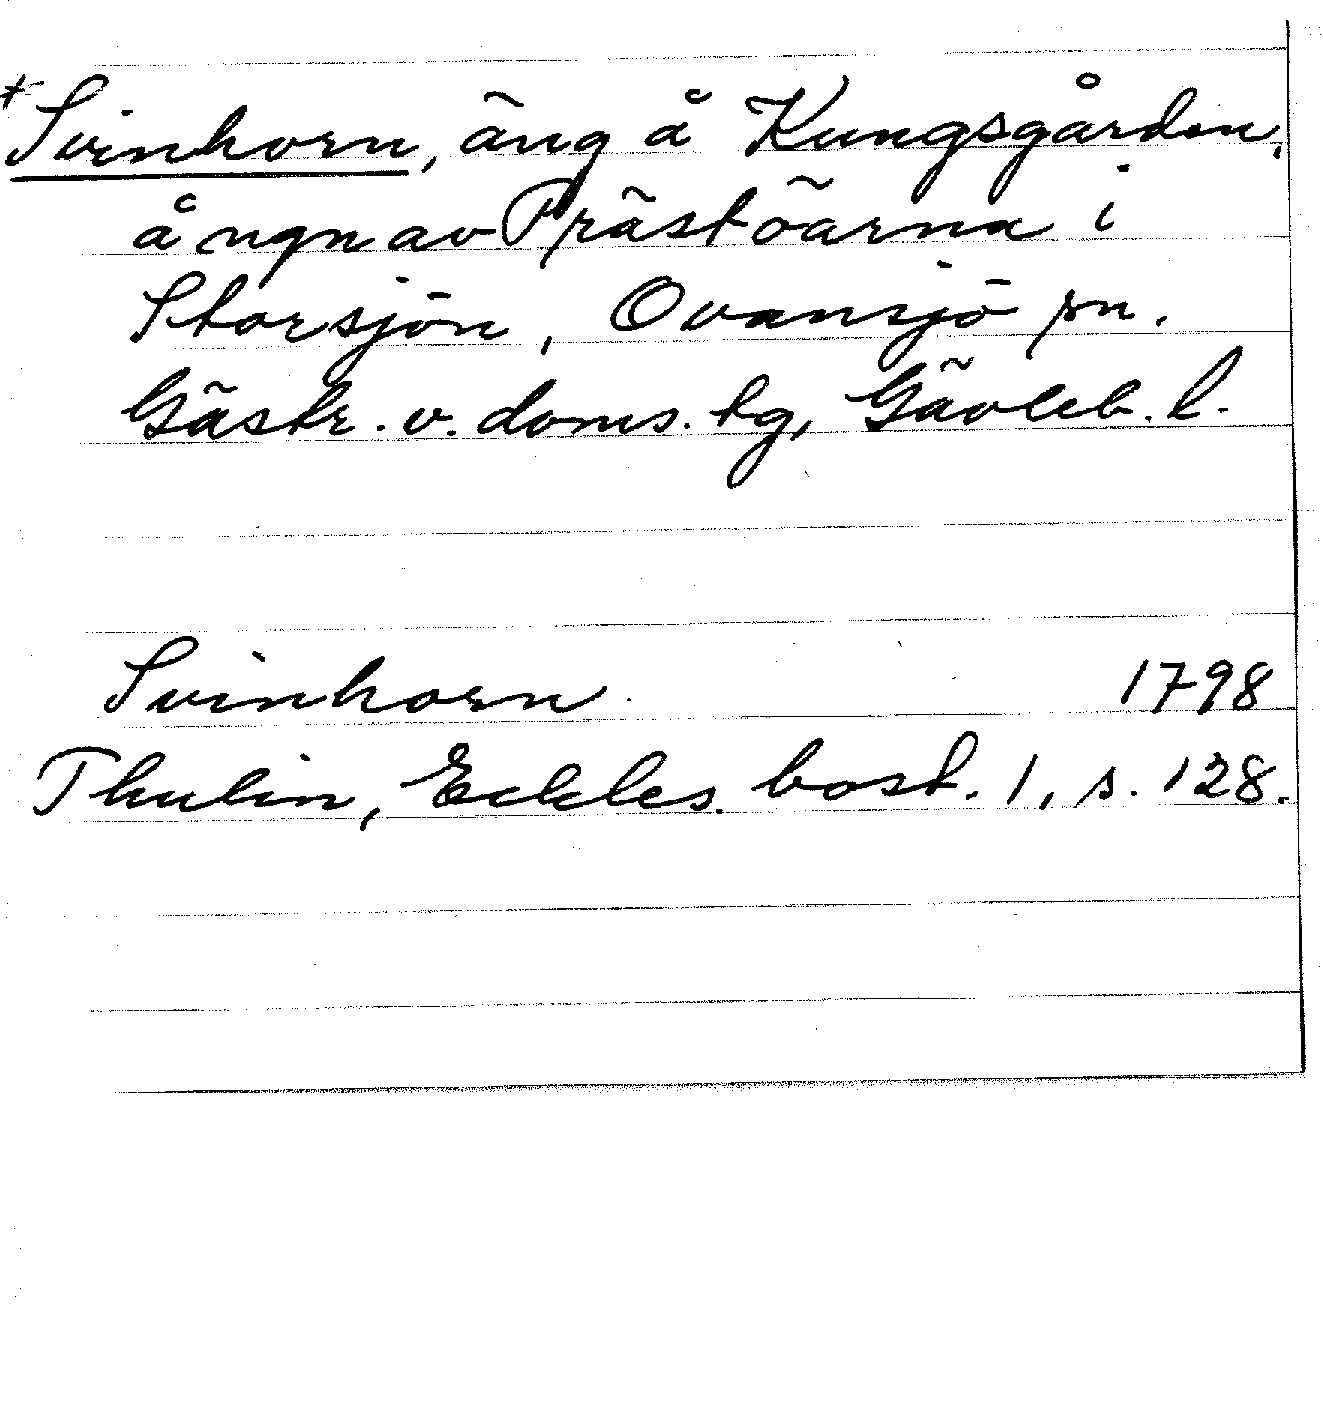 +Svinhorn, äng å Kungsgården,
å ngn av Prästöarna i
Storsjön, Ovansjö sn.
Gästr. v. doms. tg, Gävleb. l.
Svinhorn 1798
Thulin, Eckles. bost. 1, s. 128.